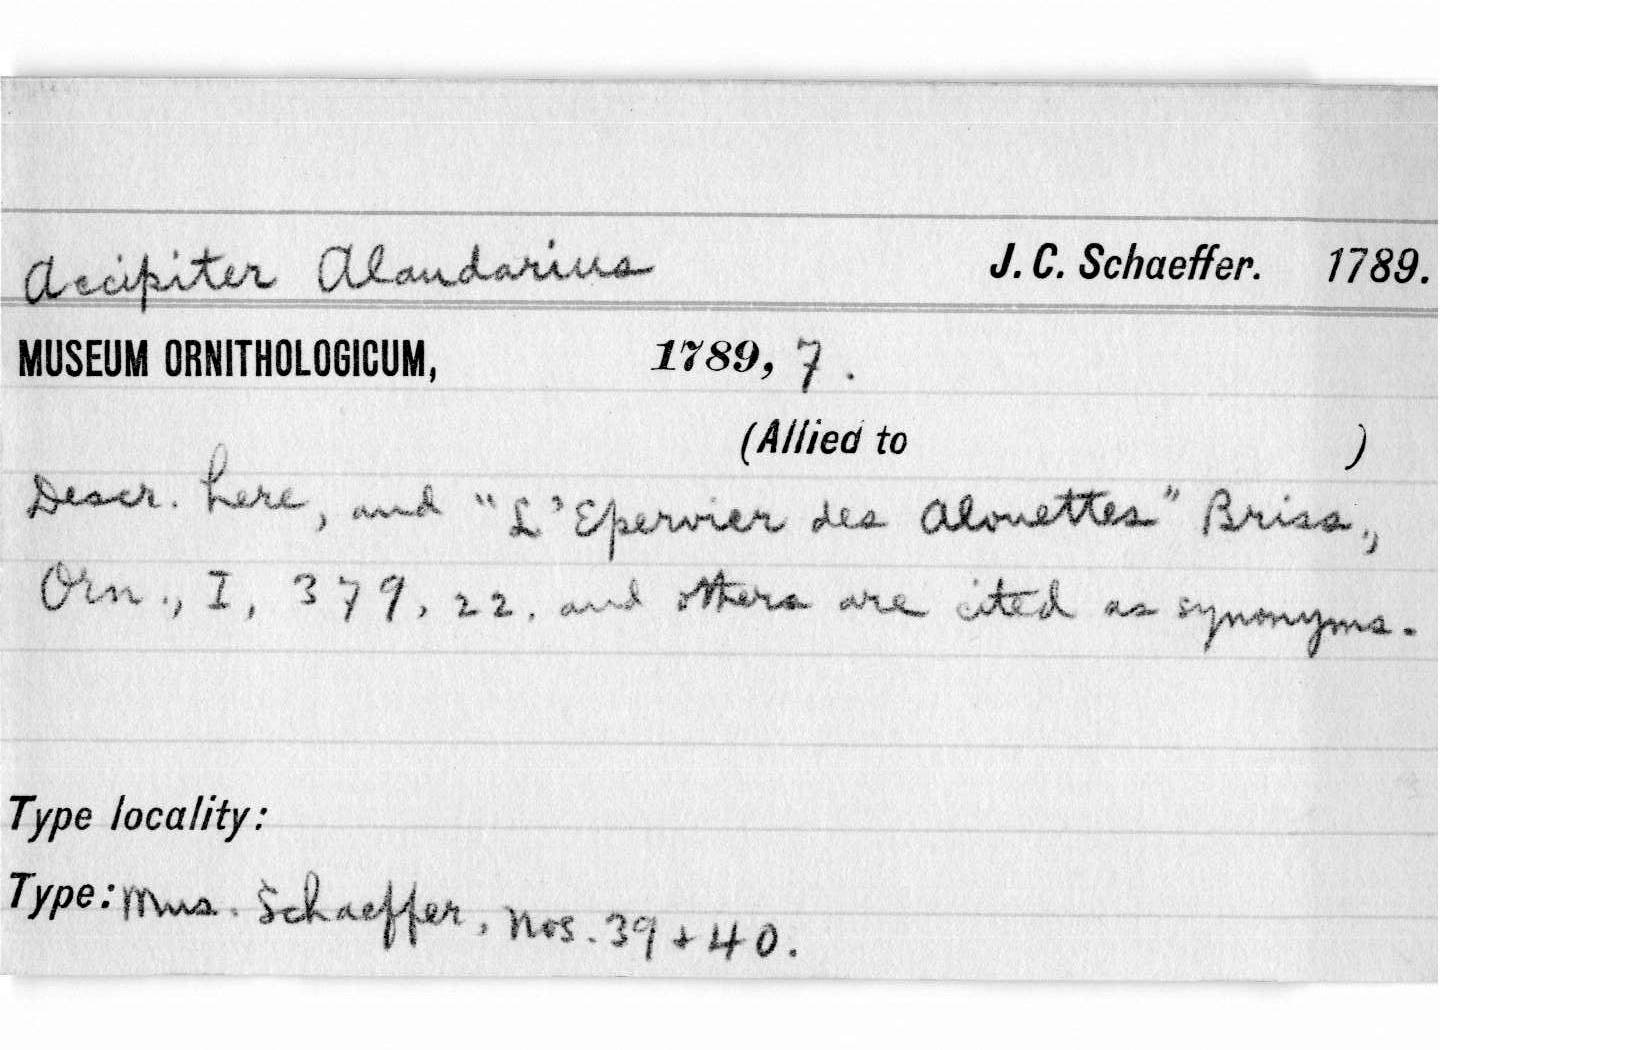 Accipiter Alaudarius J. C. Schaeffer. 1789.
MUSEUM ORNITHOLOGICUM, 1789, 7.
(Allied to )
Descr. here, and "L'Epervier des Alouettes" Briss.,
Orn., I, 379, 22. and others are cited as synonyms.
Type locality:
Type: Mus. Schaeffer, Nos. 39 + 40.